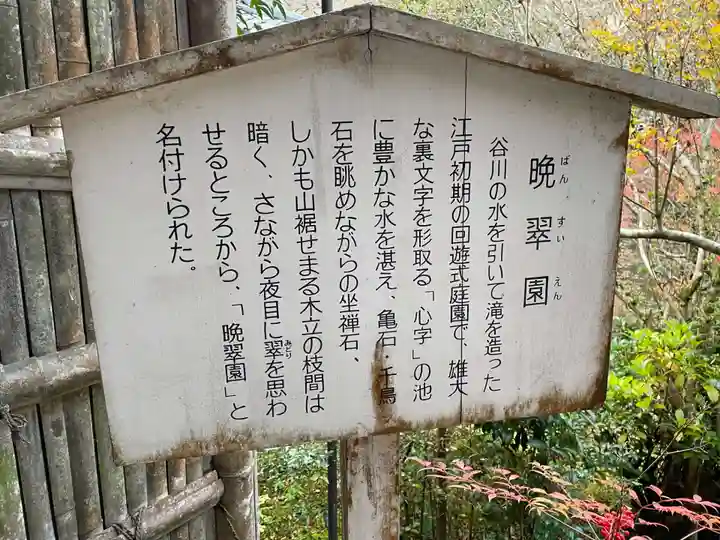 晩翠園
ばん すい えん
谷川の水を引いて滝を造った
江戸初期の回遊式庭園で、雄大
な裏文字を形取る「心字」の池
に豊かな水を湛え、亀石・千鳥
石を眺めながらの坐禅石、
しかも山裾せまる木立の枝間は
暗く、さながら夜目に翠を思わ
みどり
せるところから、「晩翠園」と
名付けられた。